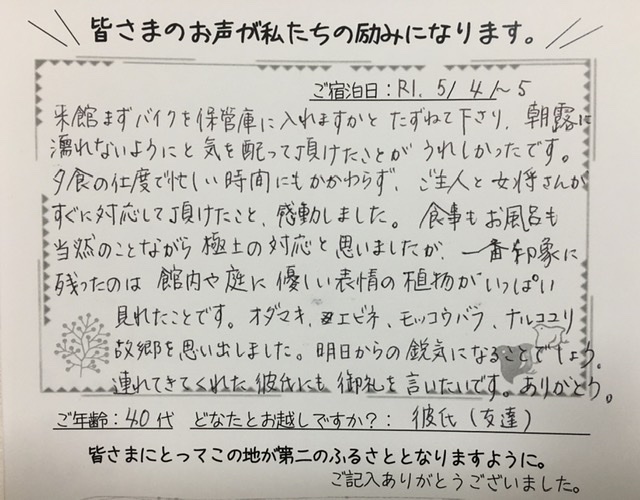 皆さまのお声が私たちの励みになります。
ご宿泊日：R1. 5/4～5
来館まずバイクを保管庫に入れますかと たずねて下さり、朝露に
濡れないようにと気を配って頂けたことが うれしかったです。
夕食の仕度で忙しい時間にもかかわらず、ご主人と女将さんが
すぐに対応して頂けたこと、感動しました。食事もお風呂も
当然のことながら 極上の対応と思いましたが、一番印象に
残ったのは 館内や庭に 優しい表情の植物がいっぱい
見れたことです。オダマキ、エビネ、モッコウバラ、ナルコユリ
故郷を思い出しました。明日からの鋭気になることでしょう。
連れてきてくれた彼氏にも御礼を言いたいです。ありがとう。
ご年齢：40代 どなたとお越しですか？：彼氏（友達）
皆さまにとってこの地が第二のふるさととなりますように。
ご記入ありがとうございました。